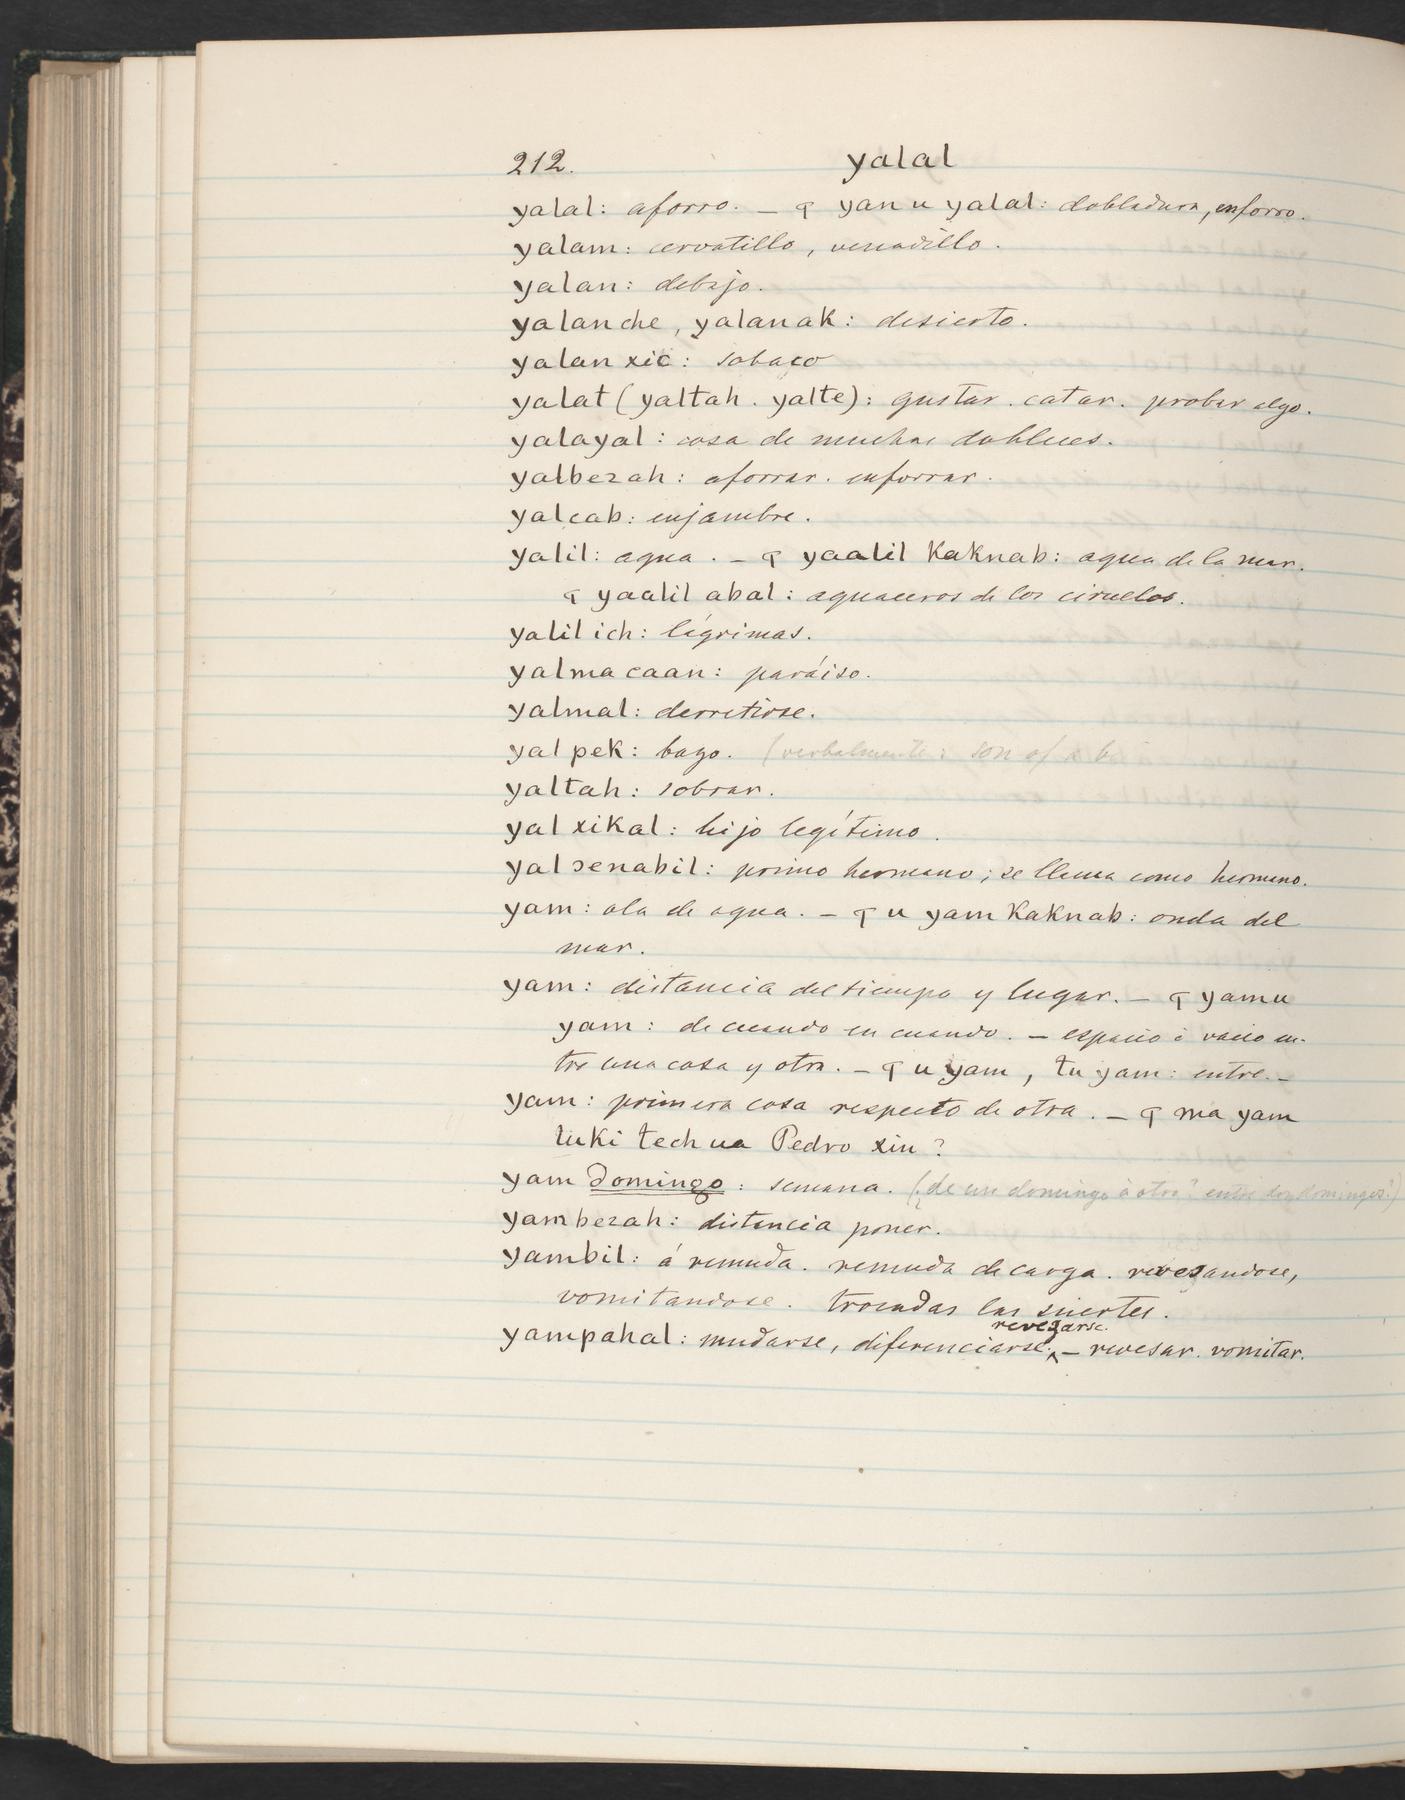 212. yalal
yalal: aforro. – ꟼ yan u yalal: dobladura, enforro.
yalam: cervatillo, venadillo.
yalan: debajo.
yalanche, yalanak: desierto.
yalan xic: sobaco
yalat (yaltah. yalte): gustar. catar. probar algo.
yalayal: cosa de muchos dobleces.
yalbezah: aforrar. enforrar.
yalcab: enjambre.
yalil: agua. – ꟼ yaalil kaknab: agua de la mar.
ꟼ yaalil abal: aguaceros de los ciruelos.
yalil ich: lágrimas.
yalma caan: paraíso.
yalmal: derretirse.
yal pek: bago. (verbalmente: son of a b
yaltah: sobrar.
yal xikal: hijo legítimo.
yal ɔenabil: primo hermano; se llama como hermano.
yam: ola de agua. – ꟼ u yam kaknab: onda del
mar.
yam: distancia del tiempo y lugar. – ꟼ yamu
yam: de cuando en cuando. – espacio ó vacio en-
tre una cosa y otra. – ꟼ u yam, tu yam: entre. –
yam: primera cosa respecto de otra. – ꟼ ma yam
luki tech ua Pedro xin?
yam domingo: semana. (¿de un domingo á otro? entre dos domingos?)
yambezah: distancia poner.
yambil: á remuda. remuda de carga. revezandose,
vomitandose. trocadas las suertes.
revezarse.
yampahal: mudarse, diferenciarse. – revesar. vomitar.